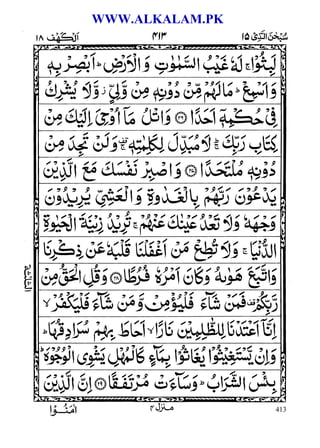 WWW.ALKALAM.PK
سُبْحٰنَ الَّذِیْۤ ۱۵
۴۱۳
اَلْكَهْف ۱۸
لَبِثُوْا ۚ لَهٗ غَیْبُ السَّمٰوٰتِ وَ الْاَرْضِ ؕ اَبْصِرْ بِهٖ
وَ اَسْمِعْ ؕ مَا لَهُمْ مِّنْ دُوْنِهٖ مِنْ وَّلِیٍّ ؗ وَّ لَا یُشْرِكُ
فِیْ حُكْمِهٖۤ اَحَدًا ﴿۲۶﴾ وَ اتْلُ مَاۤ اُوْحِیَ اِلَیْكَ مِنْ
كِتَابِ رَبِّكَ ؕۚ لَا مُبَدِّلَ لِكَلِمٰتِهٖ ۫ۚ وَ لَنْ تَجِدَ مِنْ
دُوْنِهٖ مُلْتَحَدًا ﴿۲۷﴾ وَ اصْبِرْ نَفْسَكَ مَعَ الَّذِیْنَ
یَدْعُوْنَ رَبَّهُمْ بِالْغَدٰوةِ وَ الْعَشِیِّ یُرِیْدُوْنَ
وَجْهَهٗ وَ لَا تَعْدُ عَیْنٰكَ عَنْهُمْ ۚ تُرِیْدُ زِیْنَةَ الْحَیٰوةِ
الدُّنْیَا ۚ وَ لَا تُطِعْ مَنْ اَغْفَلْنَا قَلْبَهٗ عَنْ ذِكْرِنَا
وَ اتَّبَعَ هَوٰىهُ وَ كَانَ اَمْرُهٗ فُرُطًا ﴿۲۸﴾ وَ قُلِ الْحَقُّ مِنْ
رَّبِّكُمْ ۫ فَمَنْ شَآءَ فَلْیُؤْمِنْ وَّ مَنْ شَآءَ فَلْیَكْفُرْ ۙ
اِنَّاۤ اَعْتَدْنَا لِلظّٰلِمِیْنَ نَارًا ۙ اَحَاطَ بِهِمْ سُرَادِقُهَا ؕ
وَ اِنْ یَّسْتَغِیْثُوْا یُغَاثُوْا بِمَآءٍ كَالْمُهْلِ یَشْوِی الْوُجُوْهَ ؕ
بِئْسَ الشَّرَابُ ؕ وَ سَآءَتْ مُرْتَفَقًا ﴿۲۹﴾ اِنَّ الَّذِیْنَ
منزل ۴
اٰمَنُوْا
413